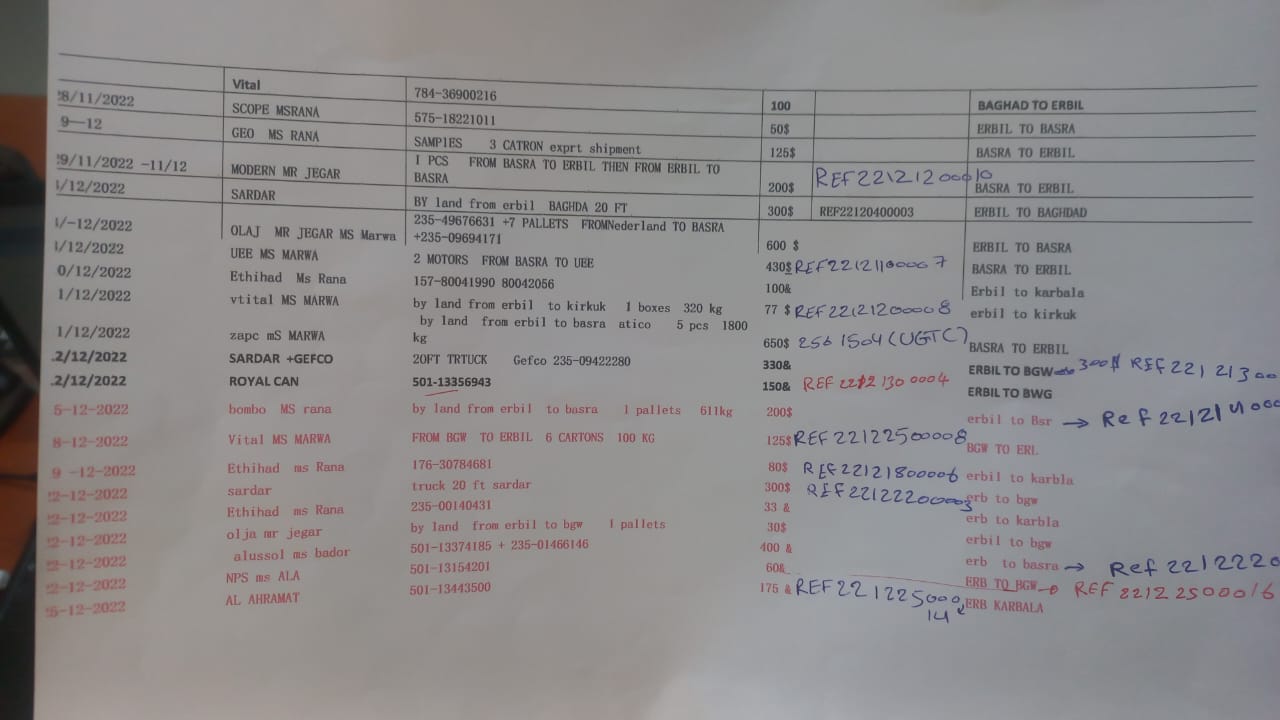 28/11/2022 Vital 784-36900216 100 BAGHAD TO ERBIL
9—12 SCOPE MSRANA 575-18221011 50$ ERBIL TO BASRA
GEO MS RANA SAMPlES 3 CATRON exprt shipment 125$ BASRA TO ERBIL
29/11/2022 -11/12 MODERN MR JEGAR 1 PCS FROM BASRA TO ERBIL THEN FROM ERBIL TO BASRA 200$ REF22121200010 BASRA TO ERBIL
1/12/2022 SARDAR BY land from erbil BAGHDA 20 FT 300$ REF22120400003 ERBIL TO BAGHDAD
1/-12/2022 OLAJ MR JEGAR MS Marwa 235-49676631 +7 PALLETS FROMNederland TO BASRA +235-09694171 600 $ ERBIL TO BASRA
1/12/2022 UEE MS MARWA 2 MOTORS FROM BASRA TO UEE 430$ REF22121100007 BASRA TO ERBIL
0/12/2022 Ethihad Ms Rana 157-80041990 80042056 100& Erbil to karbala
1/12/2022 vtital MS MARWA by land from erbil to kirkuk 1 boxes 320 kg 77 $ REF22121200008 erbil to kirkuk
1/12/2022 zapc mS MARWA by land from erbil to basra atico 5 pcs 1800 kg 650$ 2561504 (UGTC) BASRA TO ERBIL
12/12/2022 SARDAR +GEFCO 20FT TRTUCK Gefco 235-09422280 330& ERBIL TO BGW 300$ REF22121300
12/12/2022 ROYAL CAN 501-13356943 150& REF22121300004 ERBIL TO BWG
5-12-2022 bombo MS rana by land from erbil to basra 1 pallets 611kg 200$ erbil to Bsr → Ref 22121400
8-12-2022 Vital MS MARWA FROM BGW TO ERBIL 6 CARTONS 100 KG 125$ REF22122500008 BGW TO ERL
9 -12-2022 Ethihad ms Rana 176-30784681 80$ REF22121800006 erbil to karbla
22-12-2022 sardar truck 20 ft sardar 300$ REF22122200003 erb to bgw
22-12-2022 Ethihad ms Rana 235-00140431 33 & erb to karbla
22-12-2022 olja mr jegar by land from erbil to bgw 1 pallets 30$ erbil to bgw
22-12-2022 alussol ms bador 501-13374185 + 235-01466146 400 & erb to basra → Ref 2212220
22-12-2022 NPS ms ALA 501-13154201 60& ERB TO BGW → REF 22122500016
25-12-2022 AL AHRAMAT 501-13443500 175 & REF22122500014 ERB KARBALA